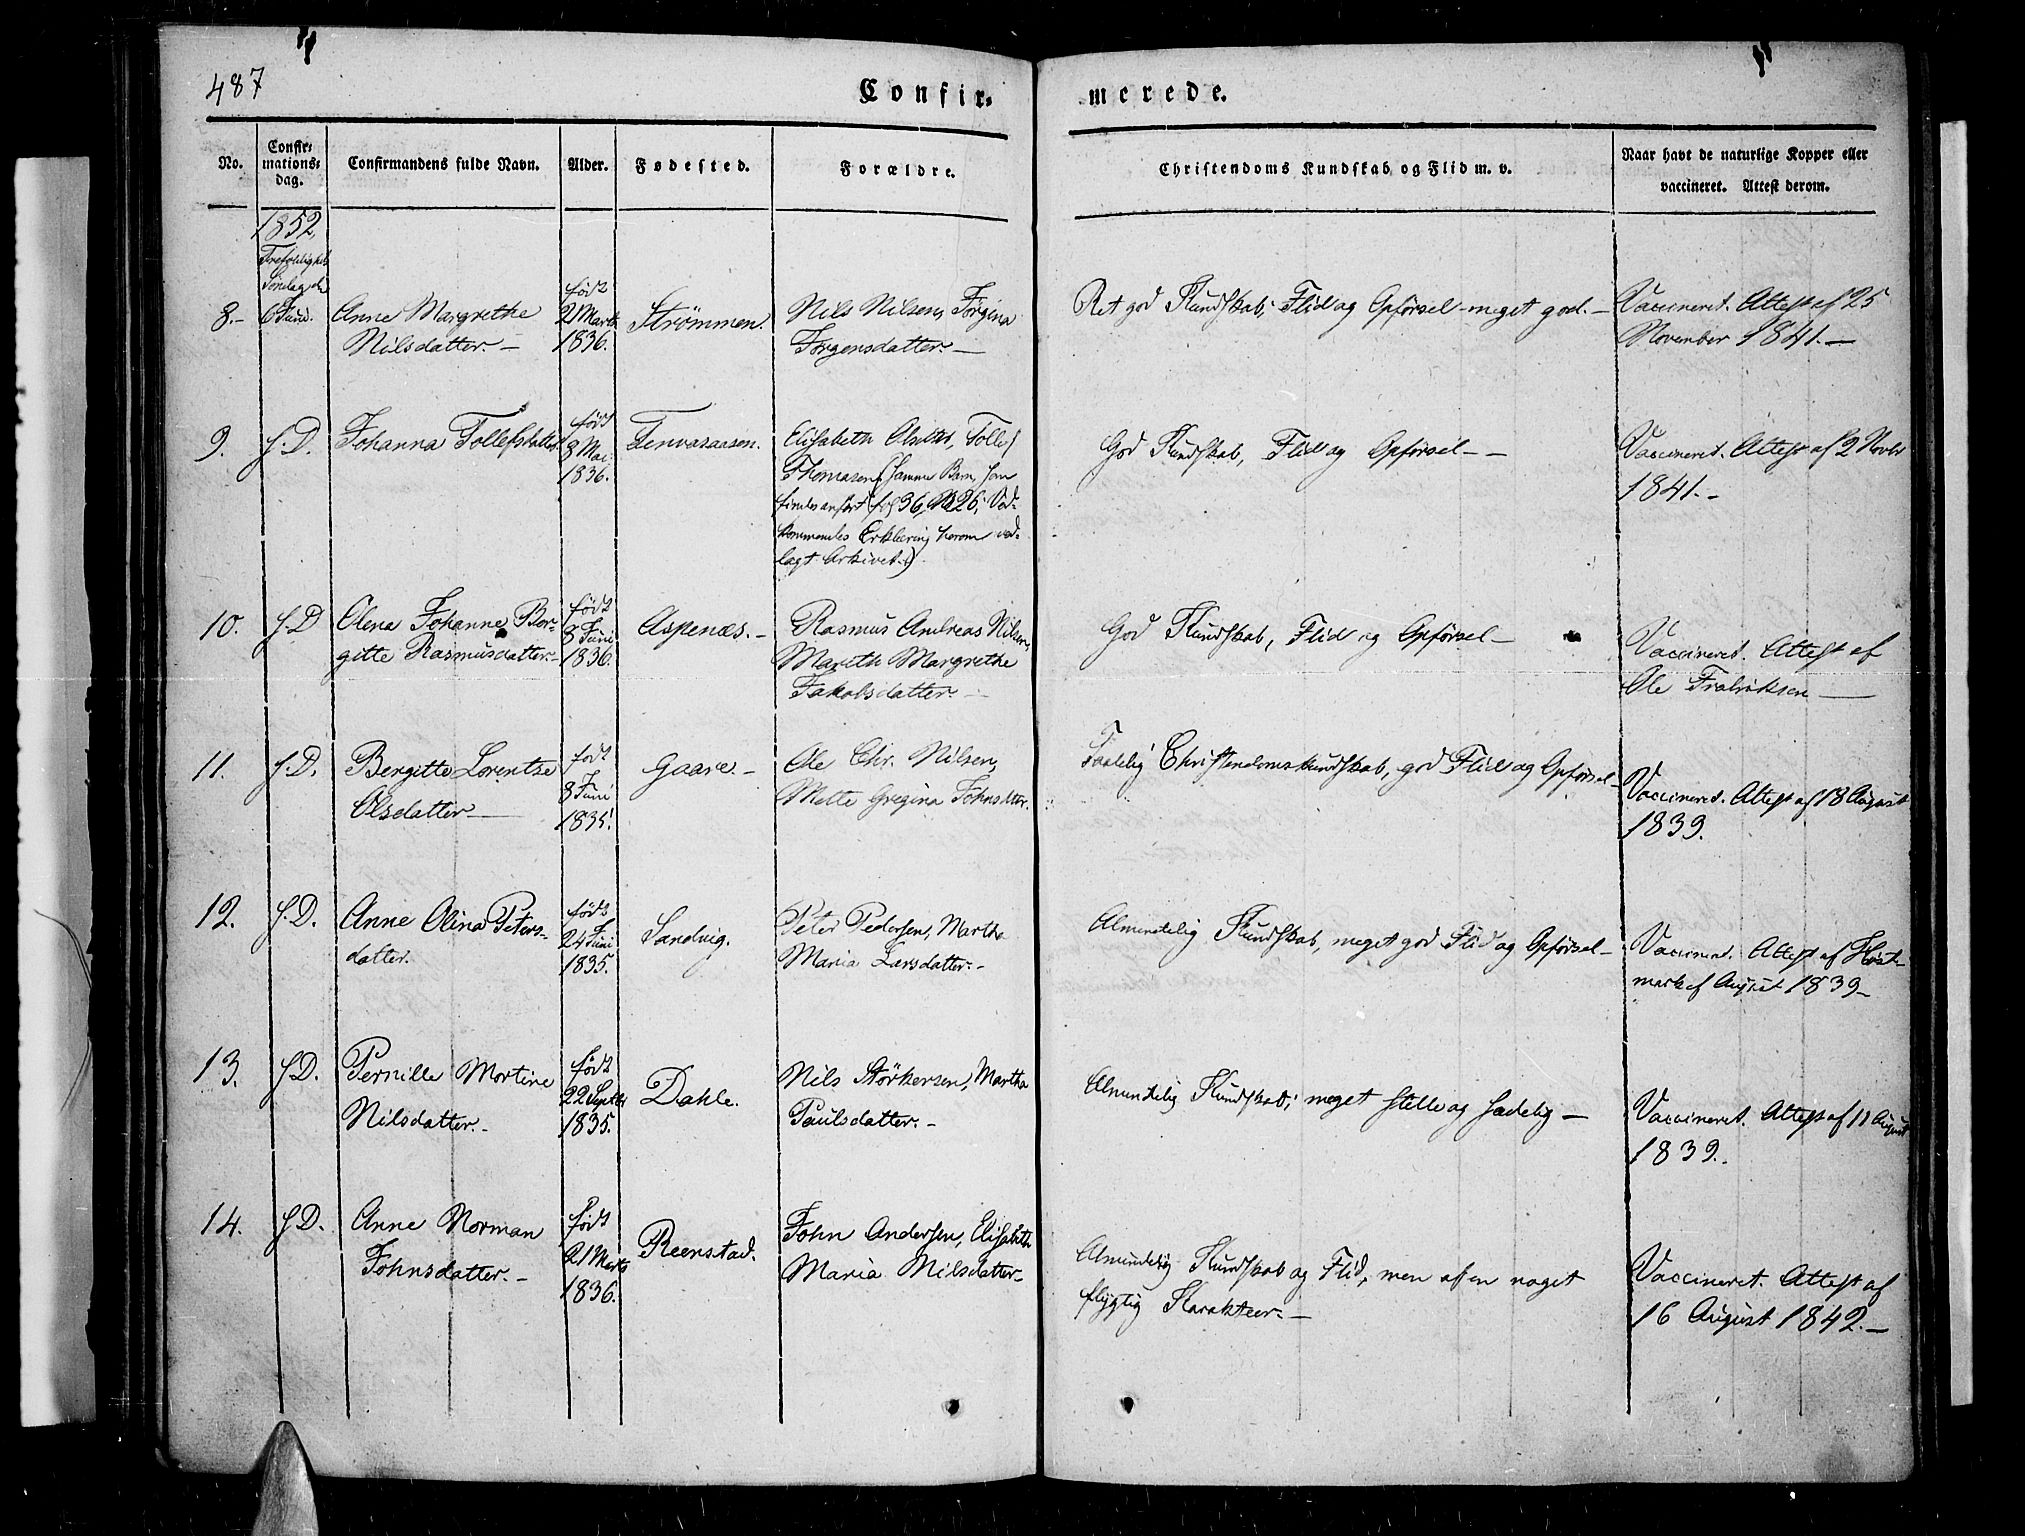 487
Confir-
merede.
No.
Confir-
mations-
dag.
Confirmandens fulde Navn.
Alder.
Fødested.
Forældre.
Christendoms Kundskab og Flid m. v.
Naar havt de naturlige Kopper eller
vaccineret. Attest derom.
1852,
Trefoldigheds
Søndag den
8.- 6 Juni. Anne Margrethe
Nilsdatter. -
født
21 Marts
1836.
Strömmen.
Nils Nilsen, Jørgina
Jørgensdatter. -
Ret god Kundskab, Flid og Opførsel meget god. -
Vaccineret. Attest af 25
November 1841. -
9. s. D. Johanna Tollefsdatter
født
8 Mai
1836.
Elisabeth Olsdtr, Tollef
Thomasen (samme Barn, som
findes anført fol 36, No 26; Ved-
kommendes Erklæring herom ved-
lagt Arkivet.)
God Kundskab, Flid og Opførsel - -
Vaccineret. Attest af 2 Novbr
1841. -
10. s. D Olena Johanne Ber-
gitte Rasmusdatter. -
født
8 Juni
1836.
Aspenæs. -
Rasmus Andreas Nilsen,
Mareth Margrethe
Jakobsdatter -
God Kundskab, Flid og Opførsel -
Vaccineret. Attest af
Ole Fredriksen -
11. s. D. Bergitte Lorentze
Olsdatter -
født
8 Juni
1835.
Gaare. -
Ole Chr. Nilsen,
Mette Gregina Johnsdtter.
Taalelig Christendomskundskab, god Flid og Opførsel -
Vaccineret. Attest af 18 August
1839.
12. s. D. Anne Olina Peters-
datter.
født
24 Juni
1835.
Sandvig.
Peter Pedersen, Martha
Maria Larsdatter. -
Almindelig Kundskab, meget god Flid og Opførsel -
Vaccineret. Attest af Host-
mark af August 1839 -
13. s. D. Pernille Mortine
Nilsdatter. -
født
22 Septbr
1835.
Dahle.
Nils Størkersen, Martha
Paulsdatter. -
Almindelig Kundskab; meget stille og sædelig -
Vaccineret. Attest af 11 August
1839. -
14. s. D. Anne Norman
Johnsdatter. -
født
21 Marts
1836.
Reenstad.
John Andersen, Elisabeth
Maria Nilsdatter -
Almindelig Kundskab og Flid, men af en noget
flygtig Karakteer. -
Vaccineret. Attest af
16 August 1842. -